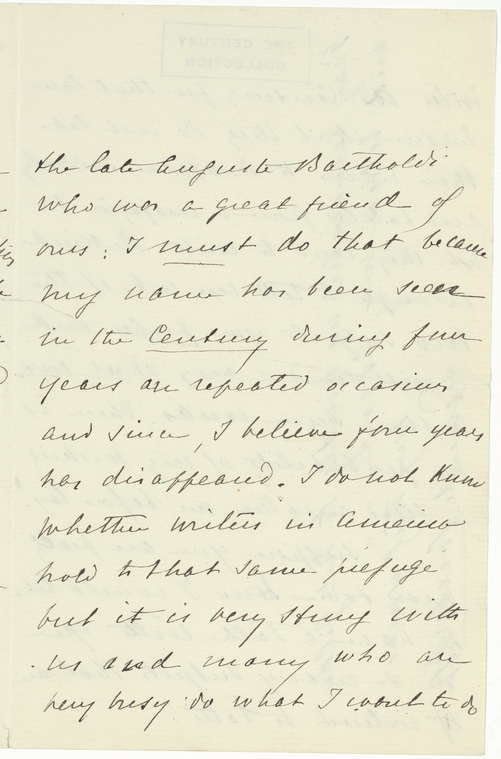 the late Auguste Bartholdi
who was a great friend of
ours; I must do that because
my name has been seen
in the Century during four
years on repeated occasions
and since, I believe four years
has disappeared. I do not know
whether writers in America
hold to that same prejuge
but it is very strong with
us and many who are
very busy do what I want to do